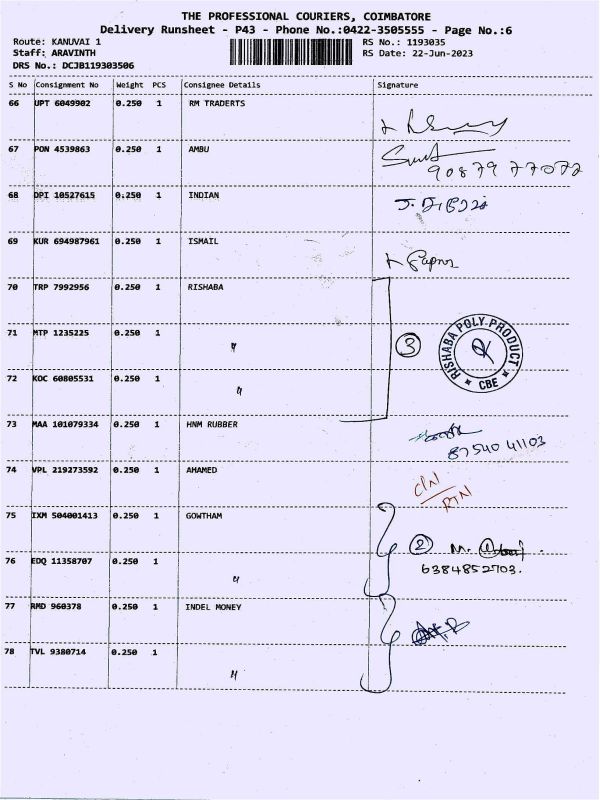 THE PROFESSIONAL COURIERS, COIMBATORE
Delivery Runsheet - P43 - Phone No.:0422-3505555 - Page No.:6
Route: KANUVAI 1 RS No.: 1193035
Staff: ARAVINTH RS Date: 22-Jun-2023
DRS No.: DCJB119303506
S No Consignment No Weight PCS Consignee Details Signature
66 UPT 6049902 0.250 1 RM TRADERTS
67 PON 4539863 0.250 1 AMBU
90879 77072
68 DPI 10527615 0.250 1 INDIAN
69 KUR 694987961 0.250 1 ISMAIL
70 TRP 7992956 0.250 1 RISHABA
71 MTP 1235225 0.250 1 〃
3
RISHABA POLY PRODUCT
CBE
72 KOC 60805531 0.250 1 〃
73 MAA 101079334 0.250 1 HNM RUBBER
87540 41103
74 VPL 219273592 0.250 1 AHAMED
RTN
75 IXM 504001413 0.250 1 GOWTHAM
2 M.
76 EDQ 11358707 0.250 1 〃
6384852703.
77 RMD 960378 0.250 1 INDEL MONEY
78 TVL 9380714 0.250 1 〃